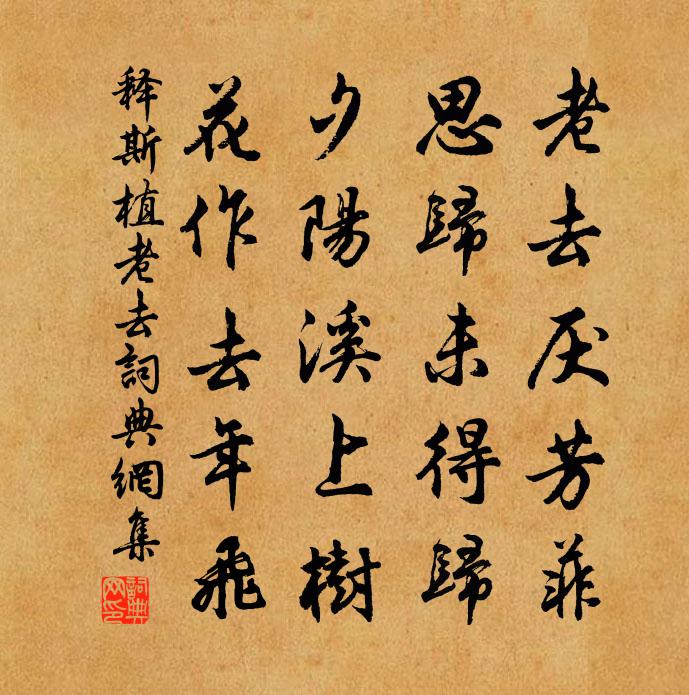 老去厌芳菲
思歸未得歸
夕陽溪上樹
花作去年飛
释斯植老去詞典網集
詞典网印